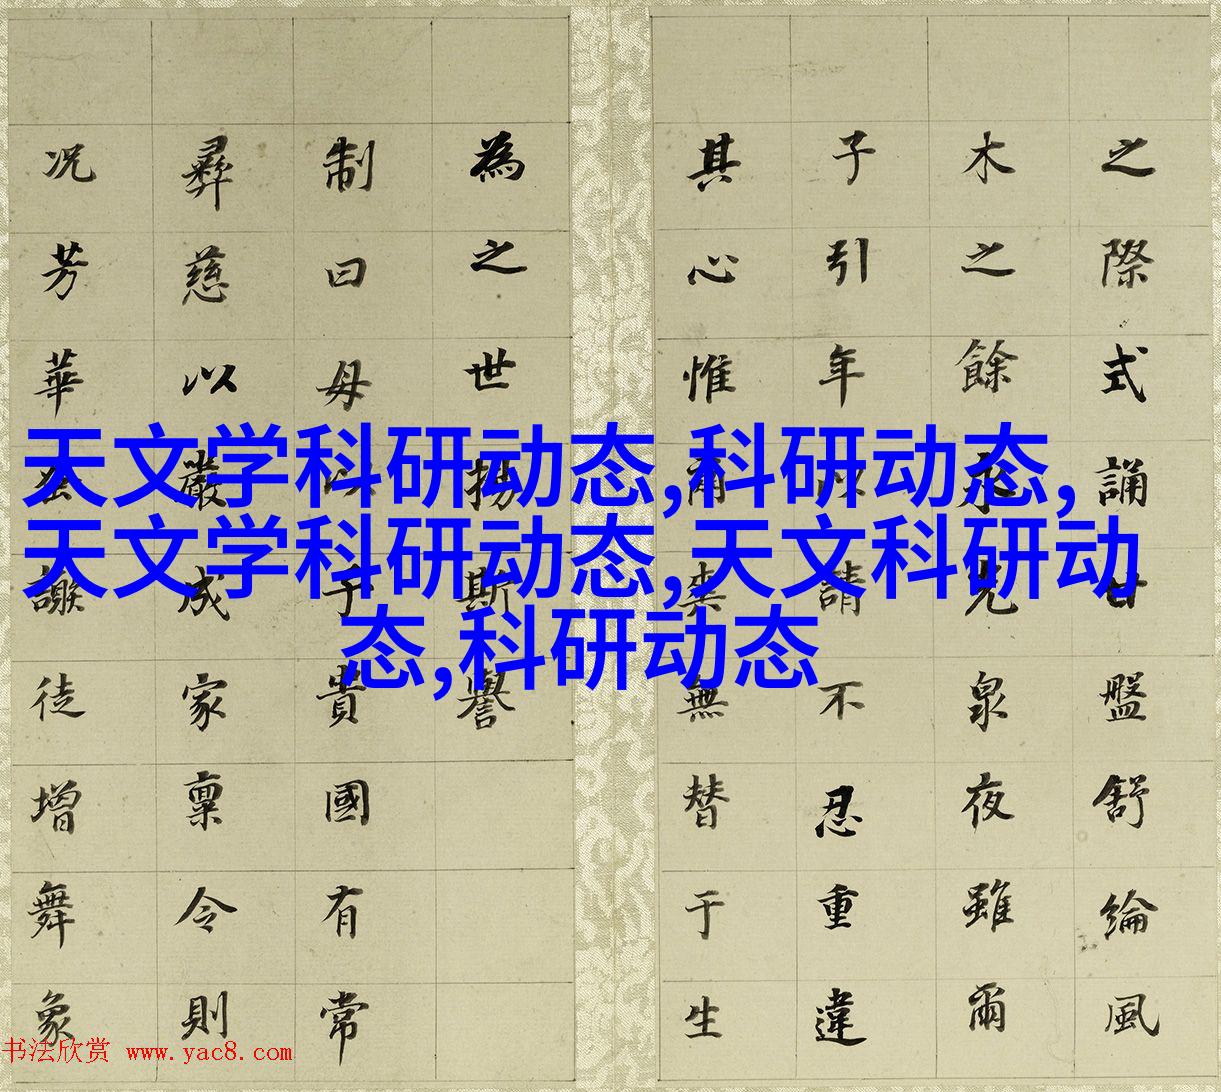 之際式誦甘盤舒綸風
木之餘永光泉夜雖爾
子引年以請不忍重違
其心惟無替于生
為之世揚斯譽
制曰母以子貴國有常
彝慈以嚴成家稟令則
況芳華徒增舞象
天文学科研动态,科研动态,
天文学科研动态,天文科研动
态,科研动态
书法欣赏 www.yac8.com